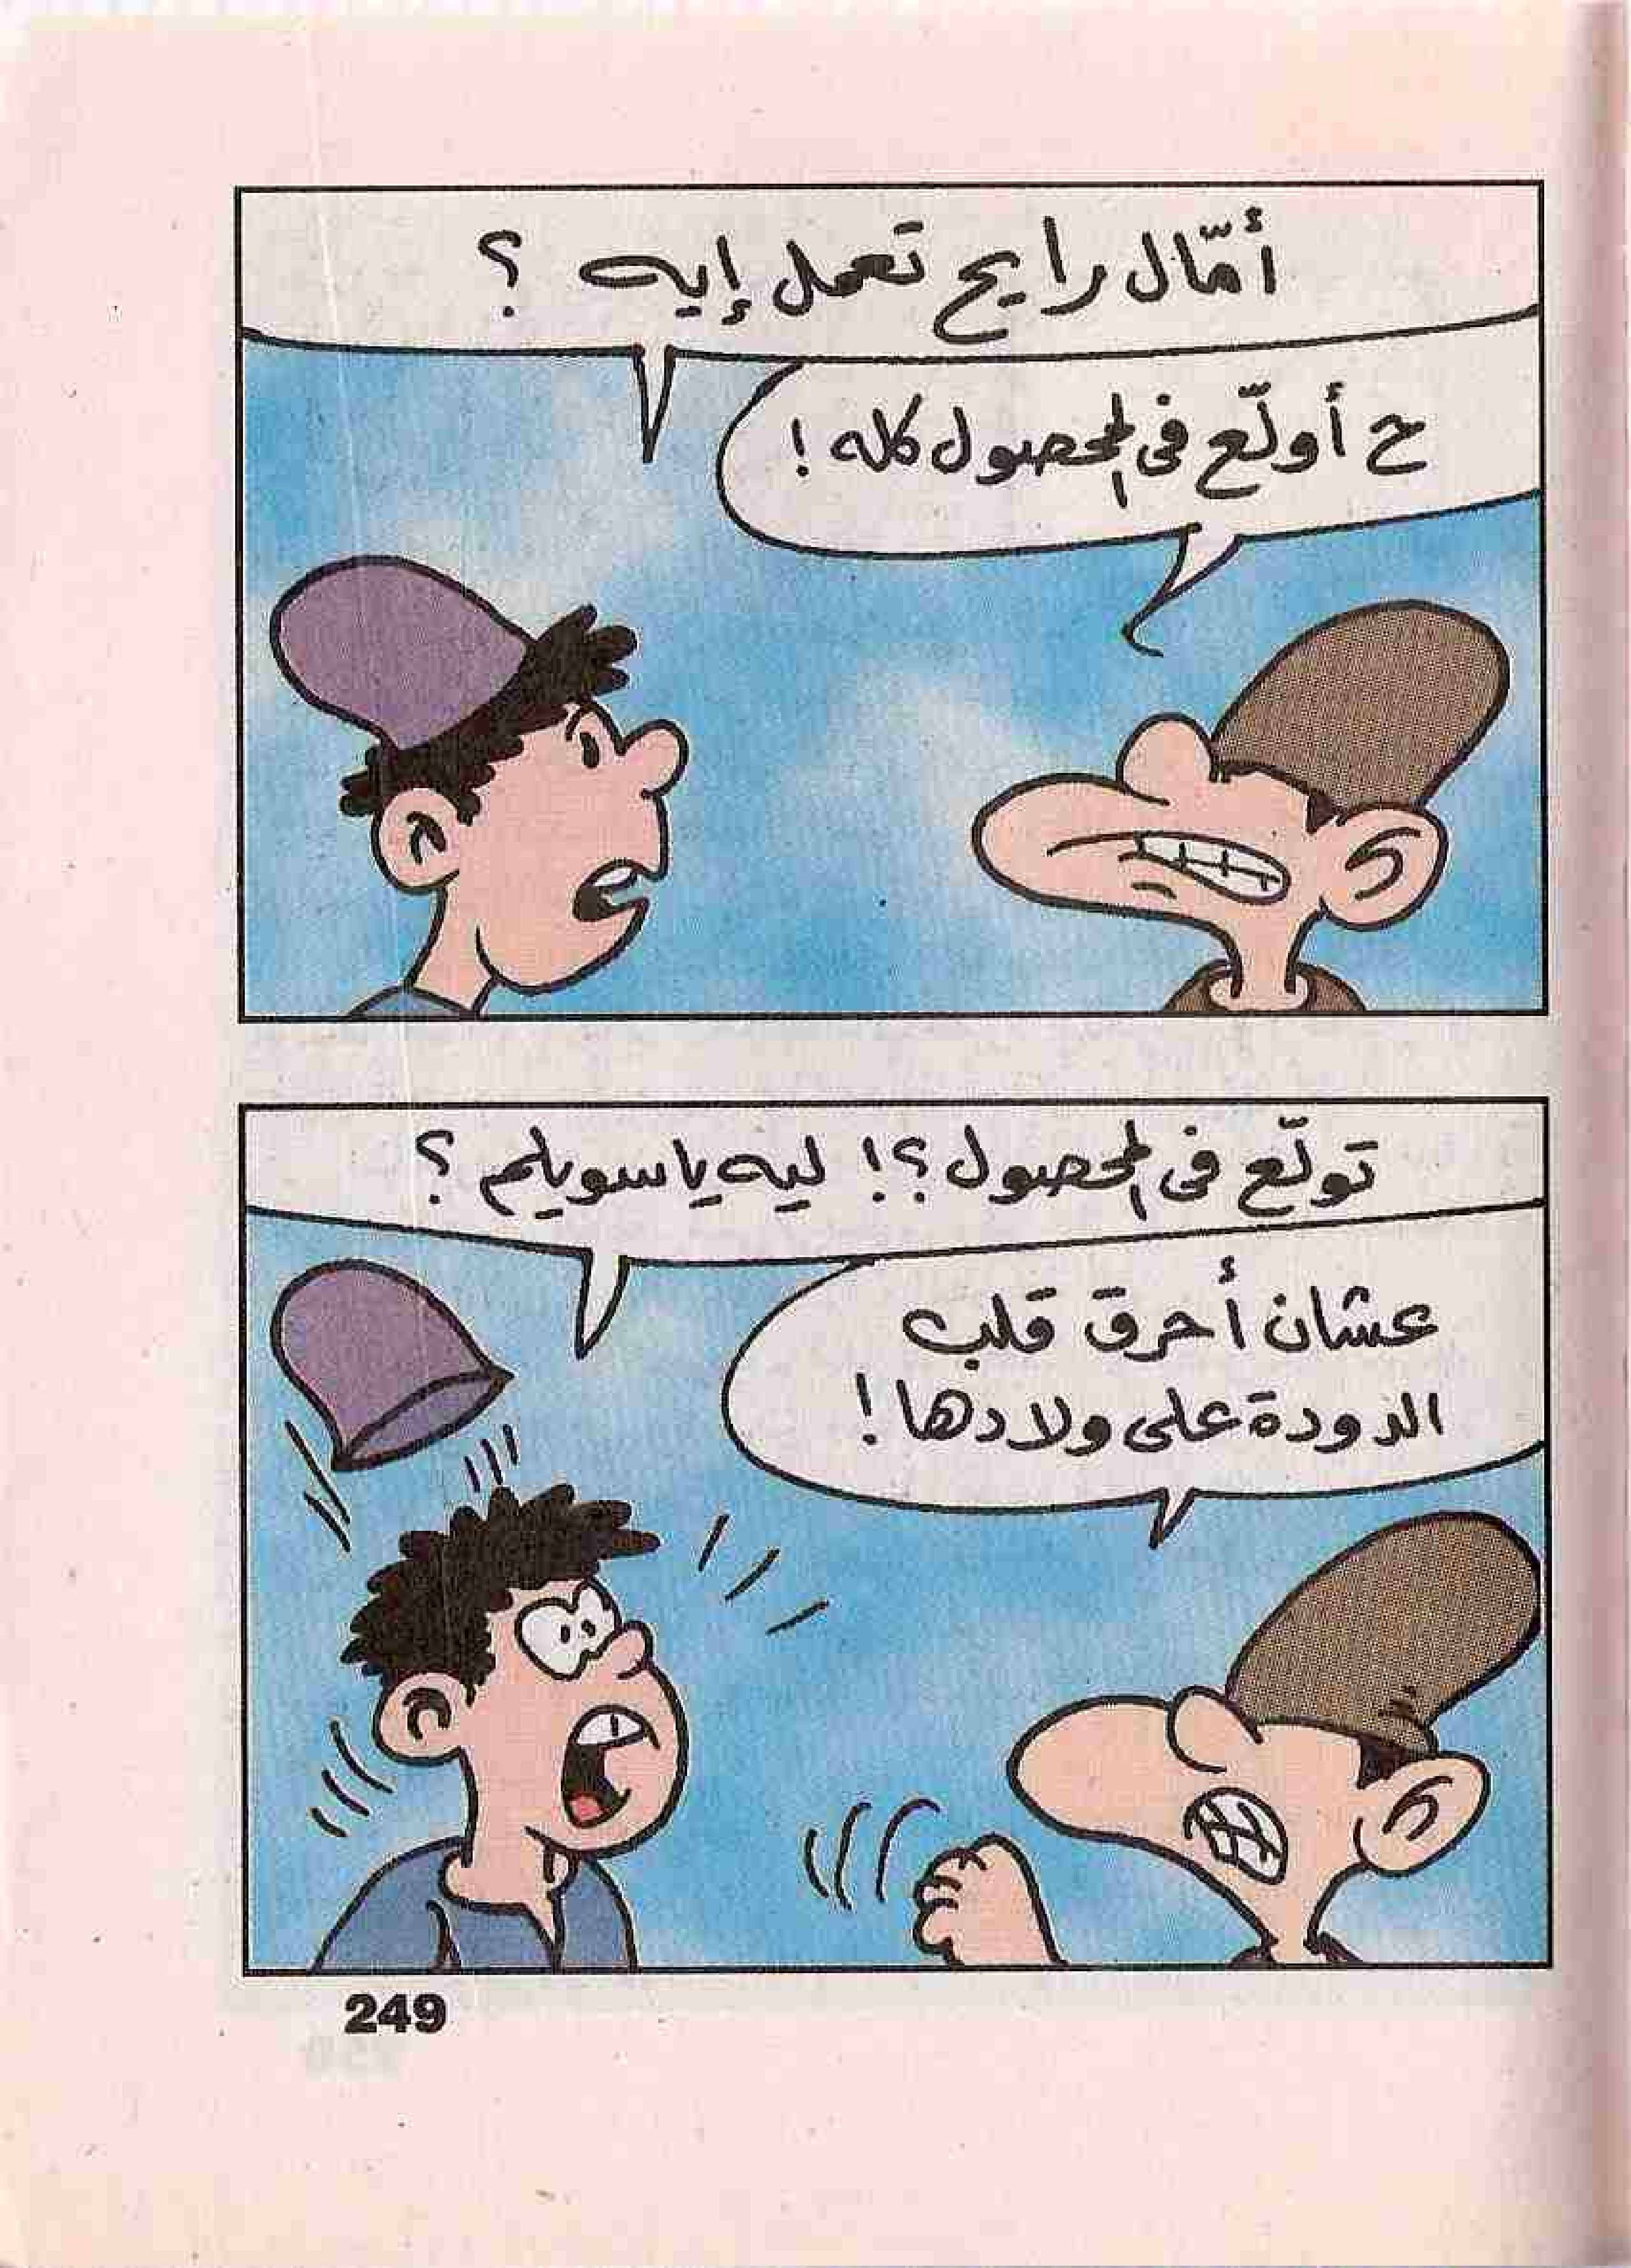 أمّال رايح تعمل إيه ؟
ح أولّع فى المحصول كله !
تولّع فى المحصول ؟! ليه يا سويلم ؟
عشان أحرق قلب
الدودة على ولادها !
249